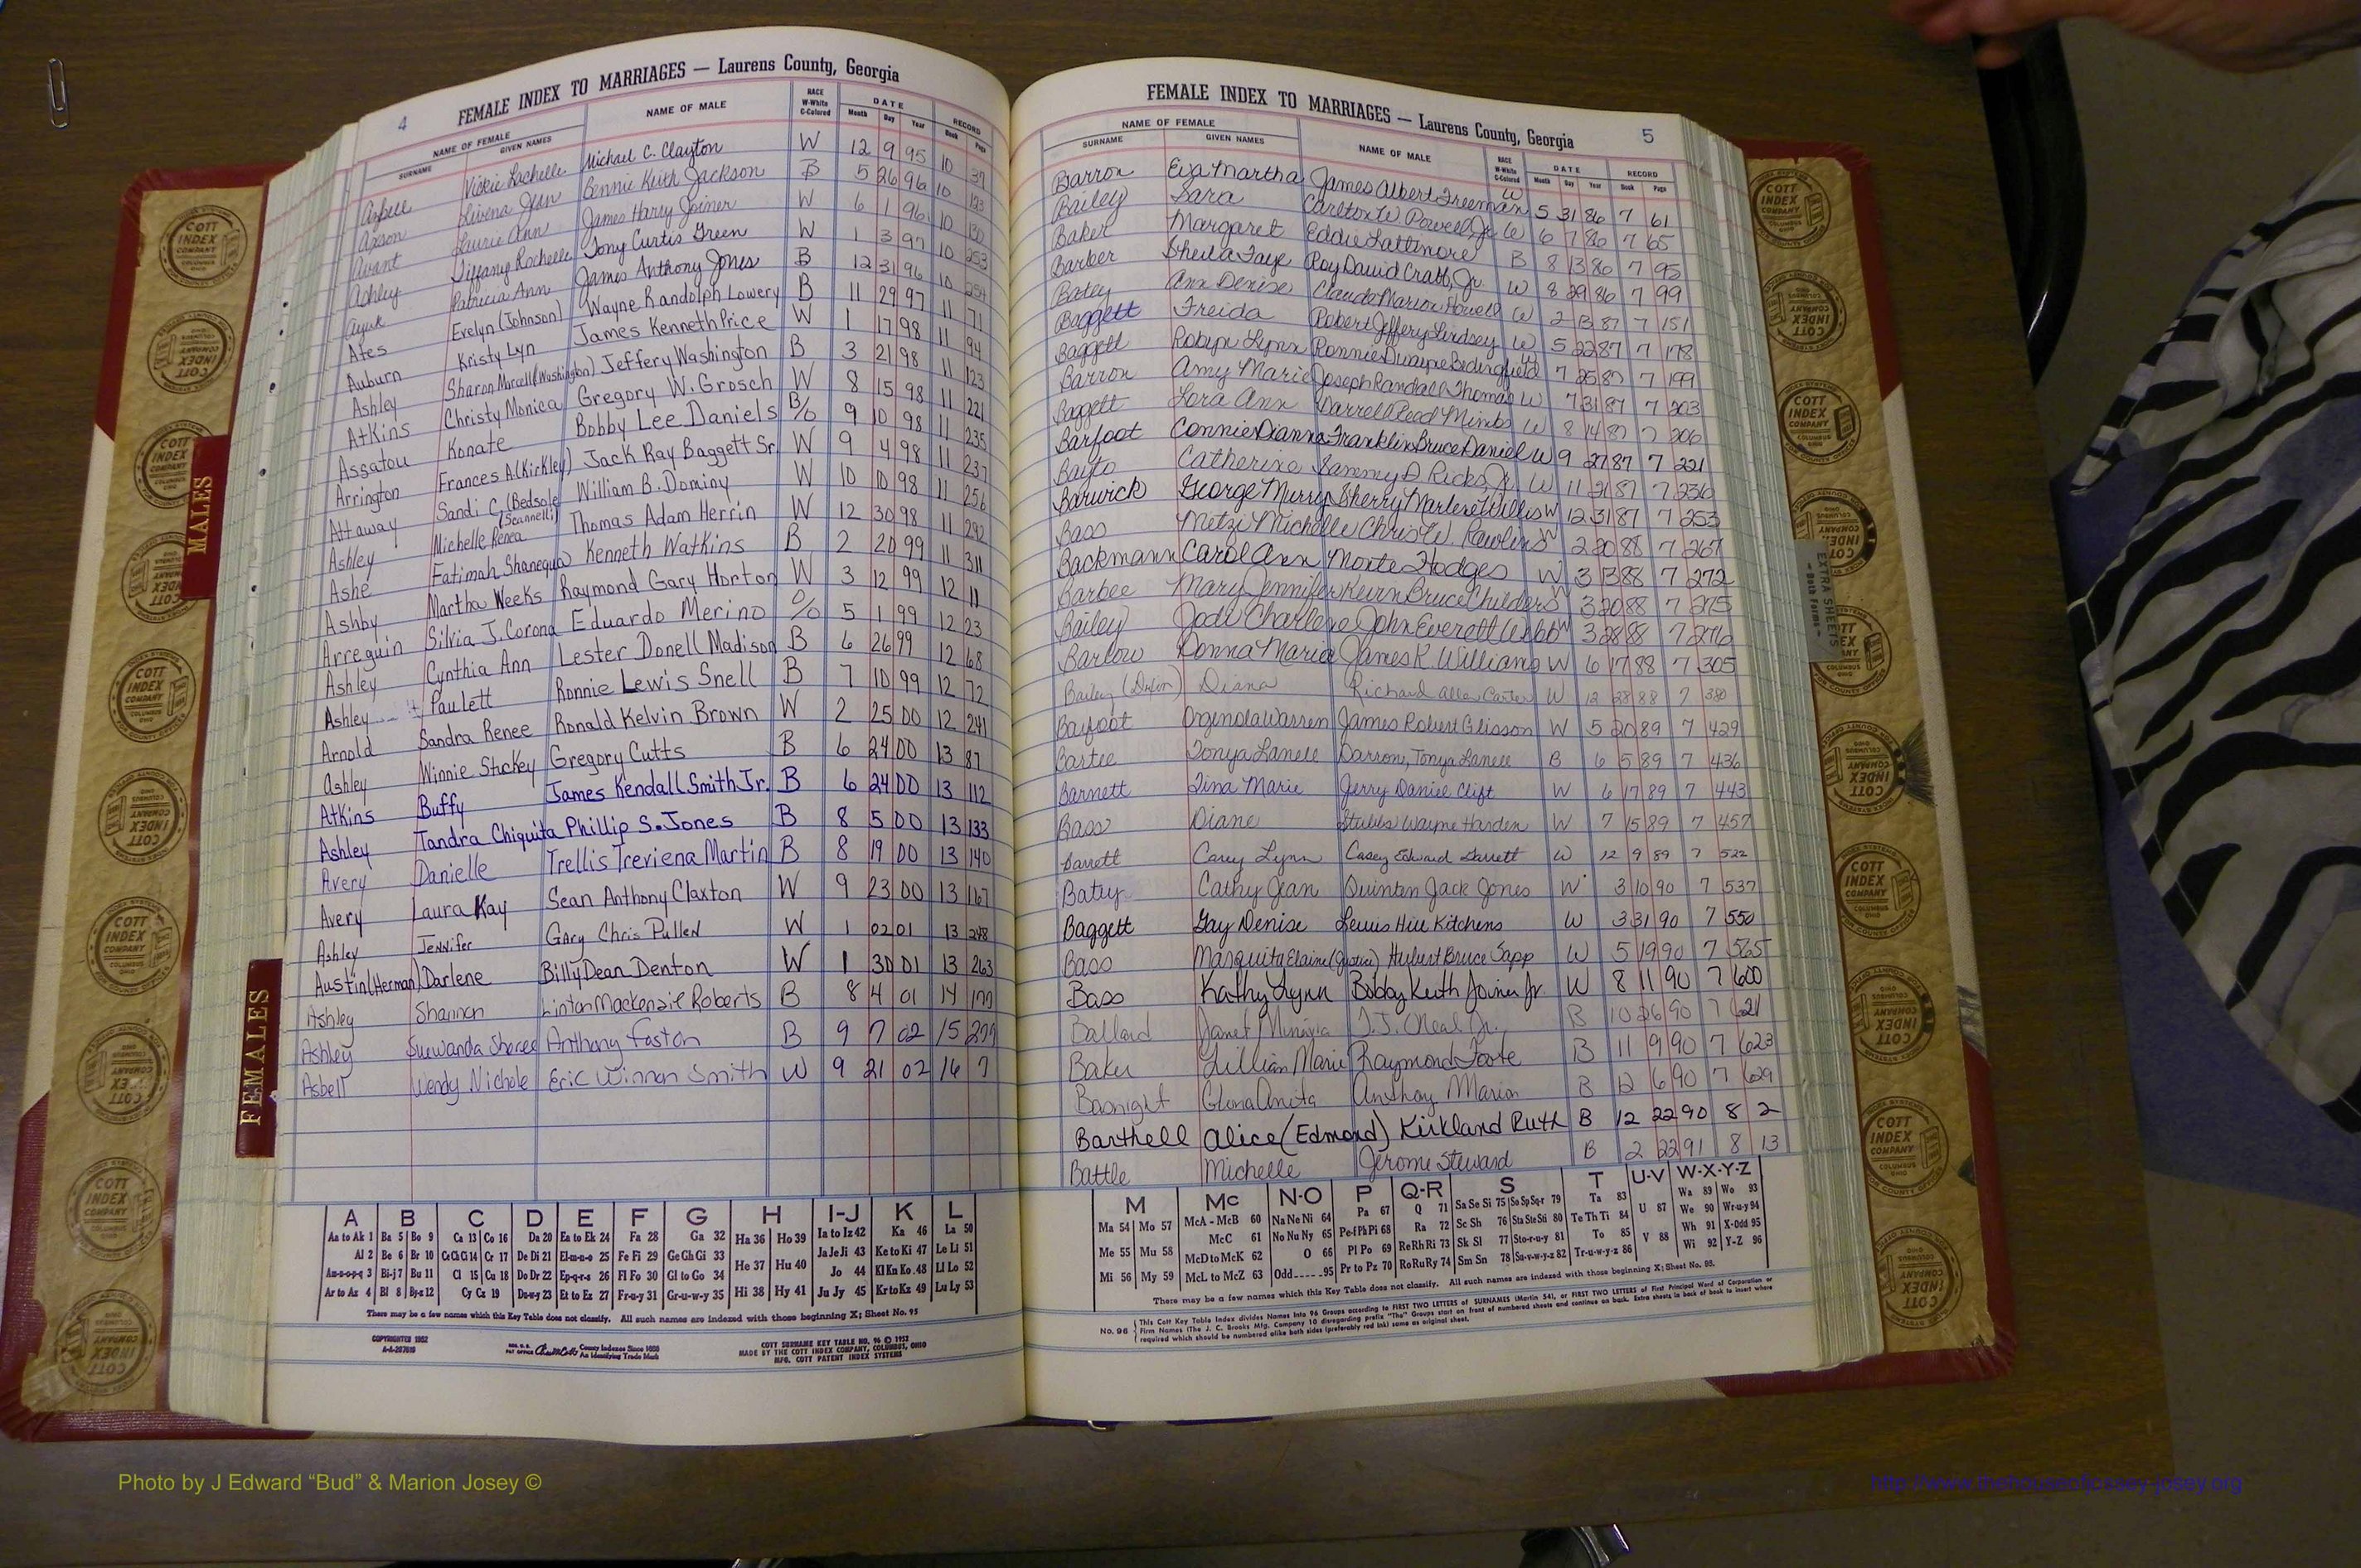 4
FEMALE INDEX TO MARRIAGES — Laurens County, Georgia
NAME OF FEMALE NAME OF MALE RACE W-White C-Colored DATE RECORD
SURNAME GIVEN NAMES Month Day Year Book Page
Asbell Vickie Lachelle Michael C. Clayton W 12 9 95 10 37
Axson Livena Jean Bennie Keith Jackson B 5 26 96 10 123
Avant Laurie Ann James Harry Joiner W 6 1 96 10 130
Ashley Tiffany Rochelle Tony Curtis Green W 1 3 97 10 253
Patricia Ann James Anthony Jones B 12 31 96 10 254
Ates Evelyn (Johnson) Wayne Randolph Lowery B 11 29 97 11 71
Auburn Kristy Lyn James Kenneth Price W 1 17 98 11 94
Ashley Sharon Marcell (Washington) Jeffery Washington B 3 21 98 11 123
Atkins Christy Monica Gregory W. Grosch W 8 15 98 11 221
Assatou Konate Bobby Lee Daniels B/O 9 10 98 11 235
Arrington Frances A (Kirkley) Jack Ray Baggett Sr. W 9 4 98 11 237
Attaway Sandi C. (Bedsole William B. Dominy W 10 10 98 11 256
Ashley Michelle Renea (Scannelli) Thomas Adam Herrin W 12 30 98 11 292
Ashe Fatimah Shanequa Kenneth Watkins B 2 20 99 11 311
Ashby Martha Weeks Raymond Gary Horton W 3 12 99 12 11
Arreguin Silvia J. Corona Eduardo Merino O/O 5 1 99 12 23
Ashley Cynthia Ann Lester Donell Madison B 6 26 99 12 68
Ashley Paulett Ronnie Lewis Snell B 7 10 99 12 72
Arnold Sandra Renee Ronald Kelvin Brown W 2 25 00 12 241
Ashley Winnie Stuckey Gregory Cutts B 6 24 00 13 87
Atkins Buffy James Kendall Smith Jr. B 6 24 00 13 112
Ashley Tandra Chiquita Phillip S. Jones B 8 5 00 13 133
Avery Danielle Trellis Treviena Martin B 8 19 00 13 140
Avery Laura Kay Sean Anthony Claxton W 9 23 00 13 167
Ashley Jennifer Gary Chris Pullen W 1 02 01 13 248
Austin (Herman) Darlene Billy Dean Denton W 1 30 01 13 263
Ashley Shannon Linton Mackenzie Roberts B 8 4 01 14
Ashley Suewanda Sheree Anthony Foston B 9 7 02 15 277
Asbell Wendy Nichole Eric Winnon Smith W 9 21 02 16 7
A B C D E F G H I-J K L
Aa to Ak 1 Ba 5 Bo 9 Ca 13 Co 16 Da 20 Ea to Ek 24 Fa 28 Ga 32 Ha 36 Ho 39 Ia to Iz 42 Ka 46 La 50
Al 2 Be 6 Br 10 Ce Ch Ci 14 Cr 17 De Di 21 El-m-n-o 25 Fe Fi 29 Ge Gh Gi 33 He 37 Hu 40 Ja Je Ji 43 Ke to Ki 47 Le Li 51
Am-n-o-p-q 3 Bi-j 7 Bu 11 Cl 15 Cu 18 Do Dr 22 Ep-q-r-s 26 Fl Fo 30 Gl to Go 34 Jo 44 Kl Kn Ko 48 Ll Lo 52
Ar to Az 4 Bl 8 By-z 12 Cy Cz 19 Du-w-y 23 Et to Ez 27 Fr-u-y 31 Gr-u-w-y 35 Hi 38 Hy 41 Ju Jy 45 Kr to Kz 49 Lu Ly 53
There may be a few names which this Key Table does not classify. All such names are indexed with those beginning X; Sheet No. 95
COPYRIGHTED 1952
County Indexes Since 1888
An Identifying Trade Mark
COTT SURNAME KEY TABLE NO. 96 © 1952
MADE BY THE COTT INDEX COMPANY, COLUMBUS, OHIO
MFG. COTT PATENT INDEX SYSTEMS
FEMALE INDEX TO MARRIAGES — Laurens County, Georgia 5
NAME OF FEMALE NAME OF MALE RACE W-White C-Colored DATE RECORD
SURNAME GIVEN NAMES Month Day Year Book Page
Barron Eva Martha James Albert Freeman W 5 31 86 7 61
Bailey Sara Carlton W Powell, Jr. W 6 7 86 7 65
Baker Margaret Eddie Lattimore B 8 13 86 7 95
Barber Sheila Faye Roy David Crabb, Jr. W 8 29 86 7 99
Batey Ann Denise Claude Marion Howell W 2 13 87 7 151
Baggett Freida Robert Jeffery Lindsey W 5 22 87 7 178
Baggett Robyn Lynn Ronnie Dwayne Bedingfield W 7 25 87 7 199
Barron Amy Marie Joseph Randall Thomas W 7 31 87 7 203
Baggett Lora Ann Darrell Reed Mimbs W 8 14 87 7 206
Barfoot Connie Dianna Franklin Bruce Daniel W 9 27 87 7 221
Catherine Sammy D Ricks, Jr. W 11 21 87 7 236
Barwick George Murry Sherry Marlene Willis W 12 31 87 7 253
Bass Mitzi Michelle Chris W. Rawlins W 2 20 88 7 267
Backmann Carol Ann Monte Hodges W 3 13 88 7 272
Barbee Mary Jennifer Kevin Bruce Childers W 3 20 88 7 275
Bailey Jodi Charlene John Everett Webb W 3 28 88 7 276
Barlow Donna Maria James K. Williams W 6 17 88 7 305
Bailey (Dixon) Diana Richard Allen Carter W 12 28 88 7 380
Barfoot Orgenola Warren James Robert Glisson W 5 20 89 7 429
Bartee Tonya Lanell Darron, Tonya Lanell B 6 5 89 7 436
Barnett Tina Marie Jerry Daniel Clift W 6 17 89 7 443
Bass Diane Stubbs Wayne Harden W 7 15 89 7 457
Barrett Carey Lynn Casey Edward Garrett W 12 9 89 7 522
Batey Cathy Jean Quinten Jack Jones W 3 10 90 7 537
Baggett Gay Denise Lewis Hill Kitchens W 3 31 90 7 550
Bass Marquita Elaine (Graves) Hulbert Bruce Sapp W 5 19 90 7 565
Bass Kathy Lynn Bobby Keith Joiner Jr. W 8 11 90 7 600
Ballard Janet Minervia T.J. O'Neal Jr. B 10 26 90 7 621
Baker Lillian Marie Raymond Foote B 11 9 90 7 623
Basnight Glena Anita Anthony Marion B 12 6 90 7 629
Barthell Alice (Edmond) Kirkland Ruth B 12 22 90 8 2
Battle Michelle Jerome Steward B 2 22 91 8 13
M Mc N-O P Q-R S T U-V W-X-Y-Z
Ma 54 Mo 57 McA - McB 60 Na Ne Ni 64 Pa 67 Q 71 Sa Se Si 75 So Sp Sq-r 79 Ta 83 U 87 Wa 89 Wo 93
Me 55 Mu 58 McC 61 No Nu Ny 65 Pe-f Ph Pi 68 Ra 72 Sc Sh 76 Sta Ste Sti 80 Te Th Ti 84 We 90 Wr-u-y 94
McD to McK 62 O 66 Pl Po 69 Re Rh Ri 73 Sk Sl 77 Sto-r-u-y 81 To 85 V 88 Wh 91 X-Odd 95
Mi 56 My 59 McL to McZ 63 Odd 95 Pr to Pz 70 Ro Ru Ry 74 Sm Sn 78 Su-v-w-y-z 82 Tr-u-w-y-z 86 Wi 92 Y-Z 96
There may be a few names which this Key Table does not classify. All such names are indexed with those beginning X; Sheet No. 95.
No. 96 This Cott Key Table Index divides Names into 96 Groups according to FIRST TWO LETTERS of SURNAMES (Martin 54), or FIRST TWO LETTERS of First Principal Word of Corporation or
Firm Names (The J. C. Brooks Mfg. Company 10 disregarding prefix "The") Groups start on front of numbered sheets and continue on back. Extra sheets in back of book to insert where
required which should be numbered alike both sides (preferably red ink) same as original sheet.
MALES
FEMALES
EXTRA SHEETS
COTT INDEX COMPANY COLUMBUS OHIO
Photo by J Edward “Bud” & Marion Josey ©
http://www.thehouseofjossey-josey.org